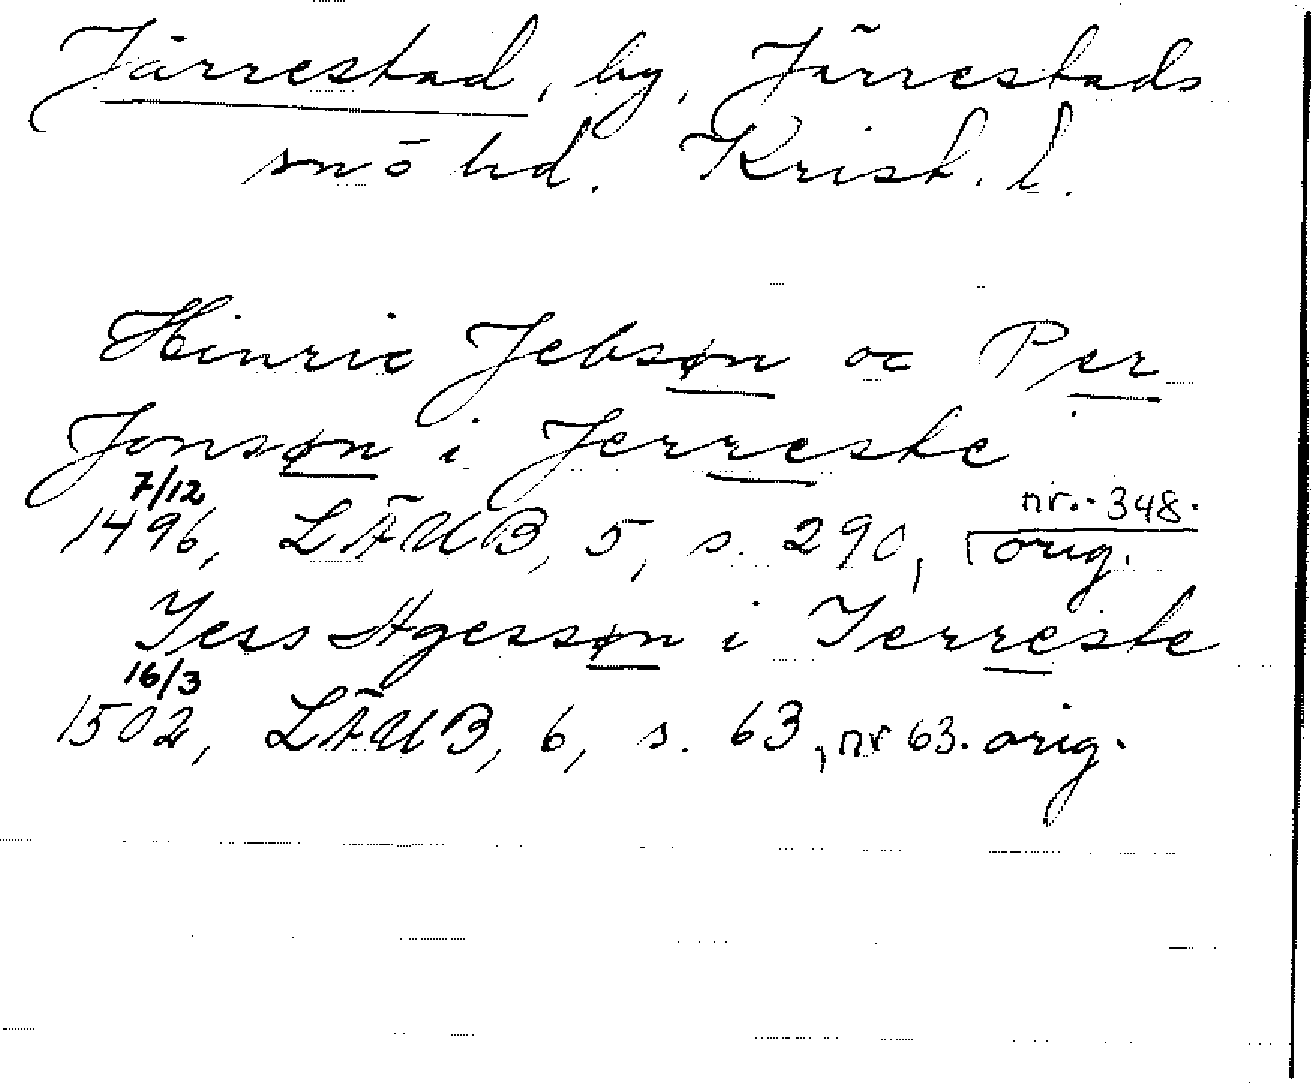 Järrestad, by, Järrestads
sn o hd. Krist. l.
Hinric Jebsøn oc Per
Jonsøn i Jerreste
7/12
1496, LÄUB, 5, s. 290, nr. 348. orig.
Jess Agessøn i Jerreste
16/3
1502, LÄUB, 6, s. 63, nr 63. orig.